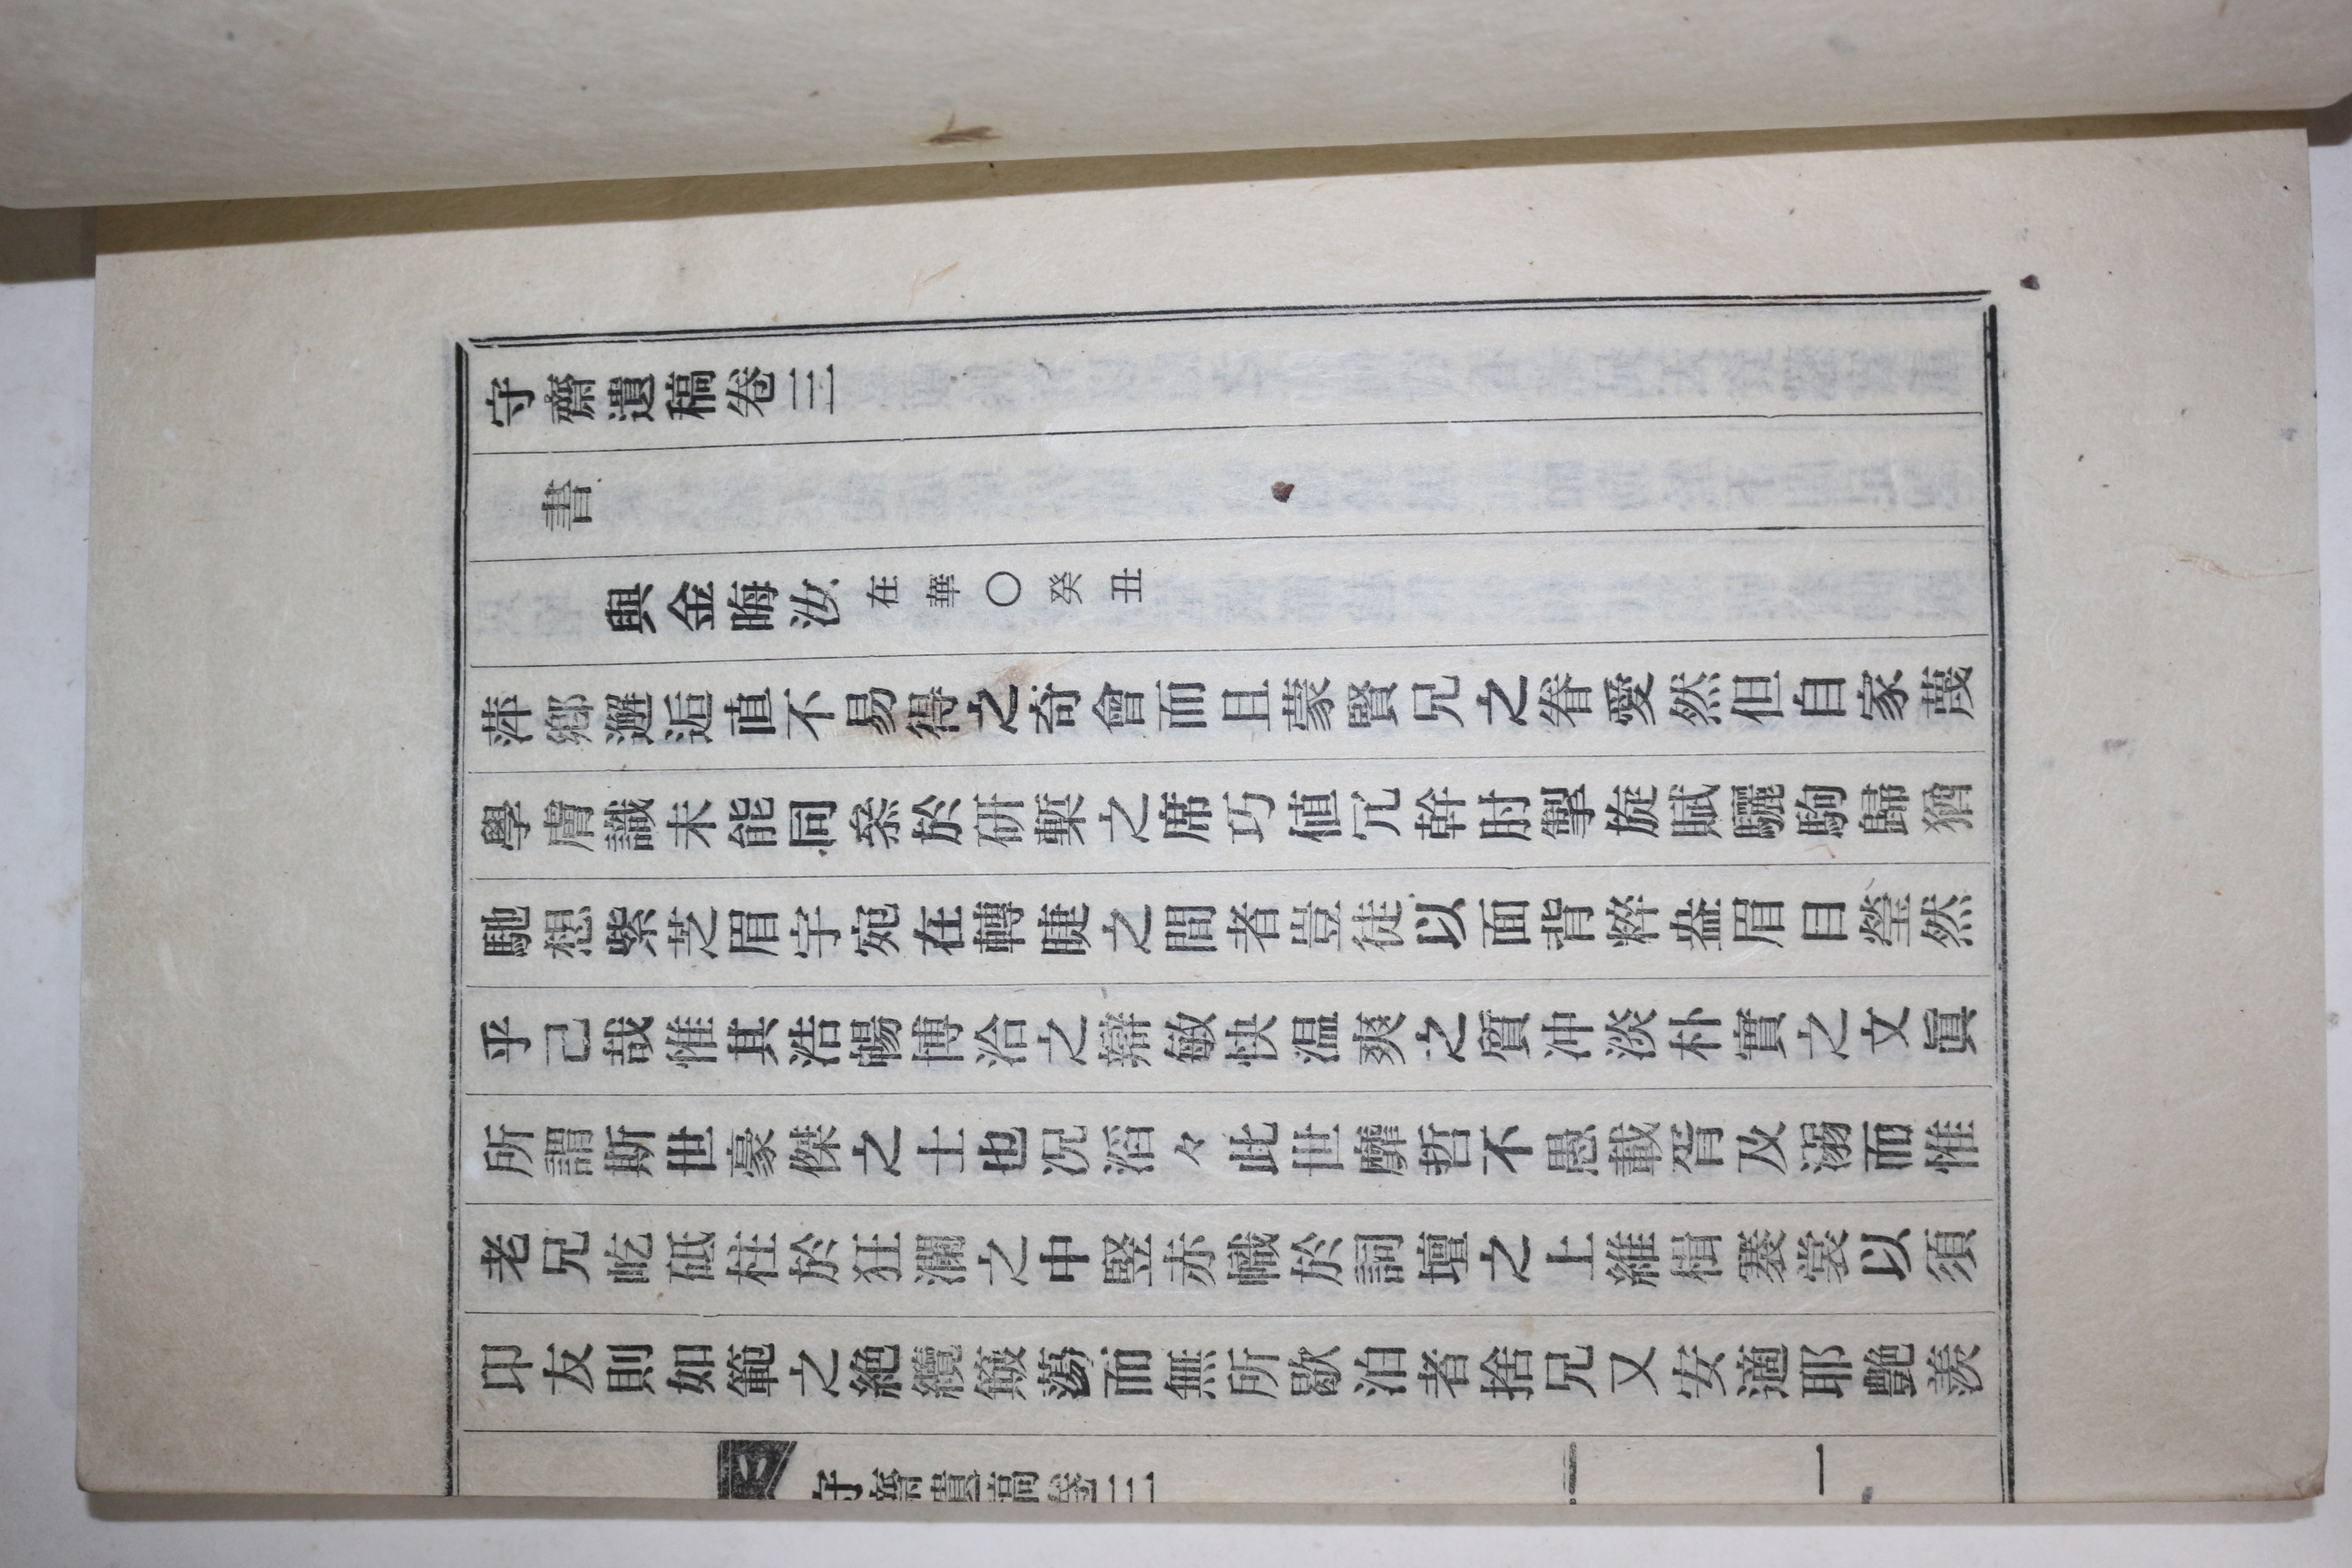 守齋遺稿卷三
書
與金晦汝在華○癸丑
萍鄉邂逅直不易得之奇會而且蒙賢兄之眷愛然但自家蔑
學膚識未能同叅於研槧之席巧値冗幹肘掣旋賦驪駒歸猶
馳想紫芝眉宇宛在轉睫之間者豈徒以面背粹盎眉目瑩然
乎己哉惟其浩暢博洽之辯敏快温爽之質冲淡朴實之文眞
所謂斯世豪傑之士也况滔々此世靡哲不愚載胥及溺而惟
老兄屹砥柱於狂瀾之中竪赤幟於詞壇之上維楫褰裳以須
卬友則如範之絶纜簸蕩而無所歇泊者捨兄又安適耶艶羨
守齋遺稿卷三
一